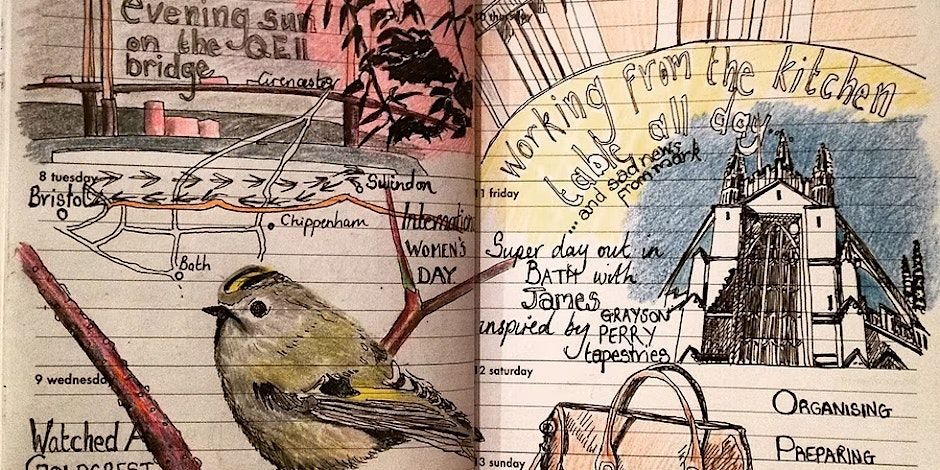 evening sun
on the QEII
bridge
Cirencester
8 tuesday
Swindon
Bristol
Chippenham
International
WOMEN'S
DAY
Bath
9 wednesday
Watched A
GOLDCREST
10 thursday
working from the kitchen
table all day...
...and sad news
from mark
11 friday
Super day out in
BATH with
James
inspired by GRAYSON
PERRY
tapestries
12 saturday
ORGANISING
PREPARING
13 sunday